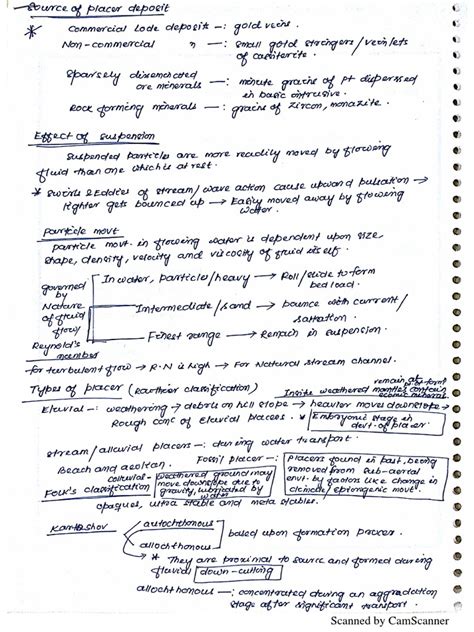 Source of placer deposit
* Commercial lode deposit —: gold veins.
Non-commercial " —: small gold stringers / veinlets
of cassiterite.
Sparsely disseminated —: minute grains of pt dispersed
ore minerals in basic intrusive.
Rock forming minerals —: grains of zircon, monazite.
Effect of suspension
Suspended particles are more readily moved by flowing
fluid than one which is at rest.
* Swirls & Eddies of stream / wave action cause upward pulsation →
lighter gets bounced up → Easily moved away by flowing
water.
Particle movt
Particle movt. in flowing water is dependent upon size,
shape, density, velocity and viscosity of fluid itself.
governed by Nature of fluid flow / Reynold's number
In water, particle / heavy → Roll / slide to form
bed load.
Intermediate / sand → bounce with current /
saltation.
Finest range → Remain in suspension.
for turbulent flow → R.N is high → For Natural stream channel.
Types of placer (Rawthier classification)
remain
Inside weathered mantles contain
economic mineral
Eluvial —: weathering → debris on hill slope → heavier moves downslope →
Rough conc of Eluvial placers. * Embryonic stage in
devt. of placer
Stream / alluvial placers —: during water transport.
Beach and aeolian.
Fossil placer —: placers found in past, being
removed from sub-aerial
envt. by factors like change in
climate / epirogenic movt.
colluvial - weathered ground may
move downslope due to
gravity, lubricated by
water
Folk's classification
opaques, ultra stable and meta stables.
Kartashov
autochthonous
allochthonous
based upon formation process
* They are proximal to source and formed during
fluvial down-cutting
allochthonous —: concentrated during an aggradation
stage after significant transport.
Scanned by CamScanner